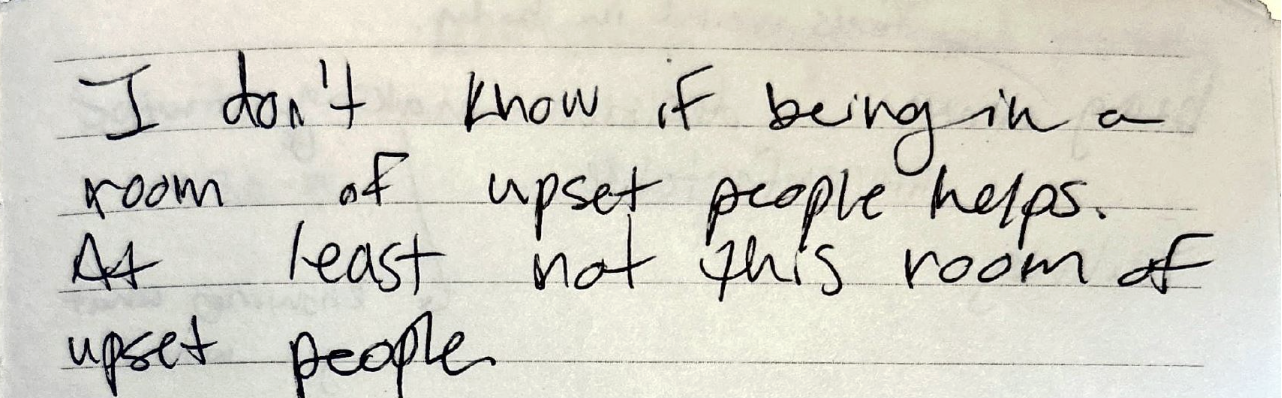 I don't know if being in a
room of upset people helps.
At least not this room of
upset people.